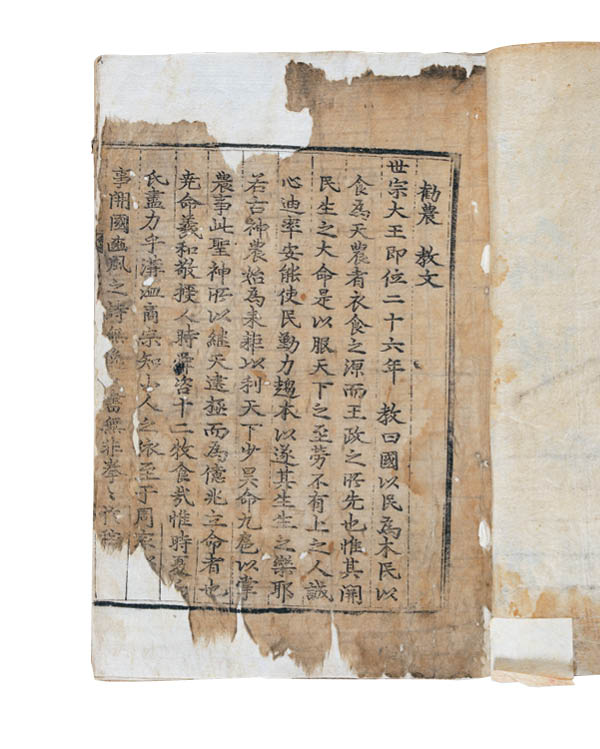 勸農 教文
世宗大王即位二十六年 教曰國以民為本民以
食為天農者衣食之源而王政之所先也惟其關
民生之大命是以服天下之至勞不有上之人誠
心迪率安能使民勤力趨本以遂其生生之樂耶
若古神農始為耒耜以利天下少昊命九扈以掌
農事此聖神所以継天建極而為億兆立命者也
堯命羲和敬授人時舜咨十二牧食哉惟時夏后
氏盡力乎溝洫商宗知小人之依至于周家
事開國豳風之詩無逸書無非拳〻於稼